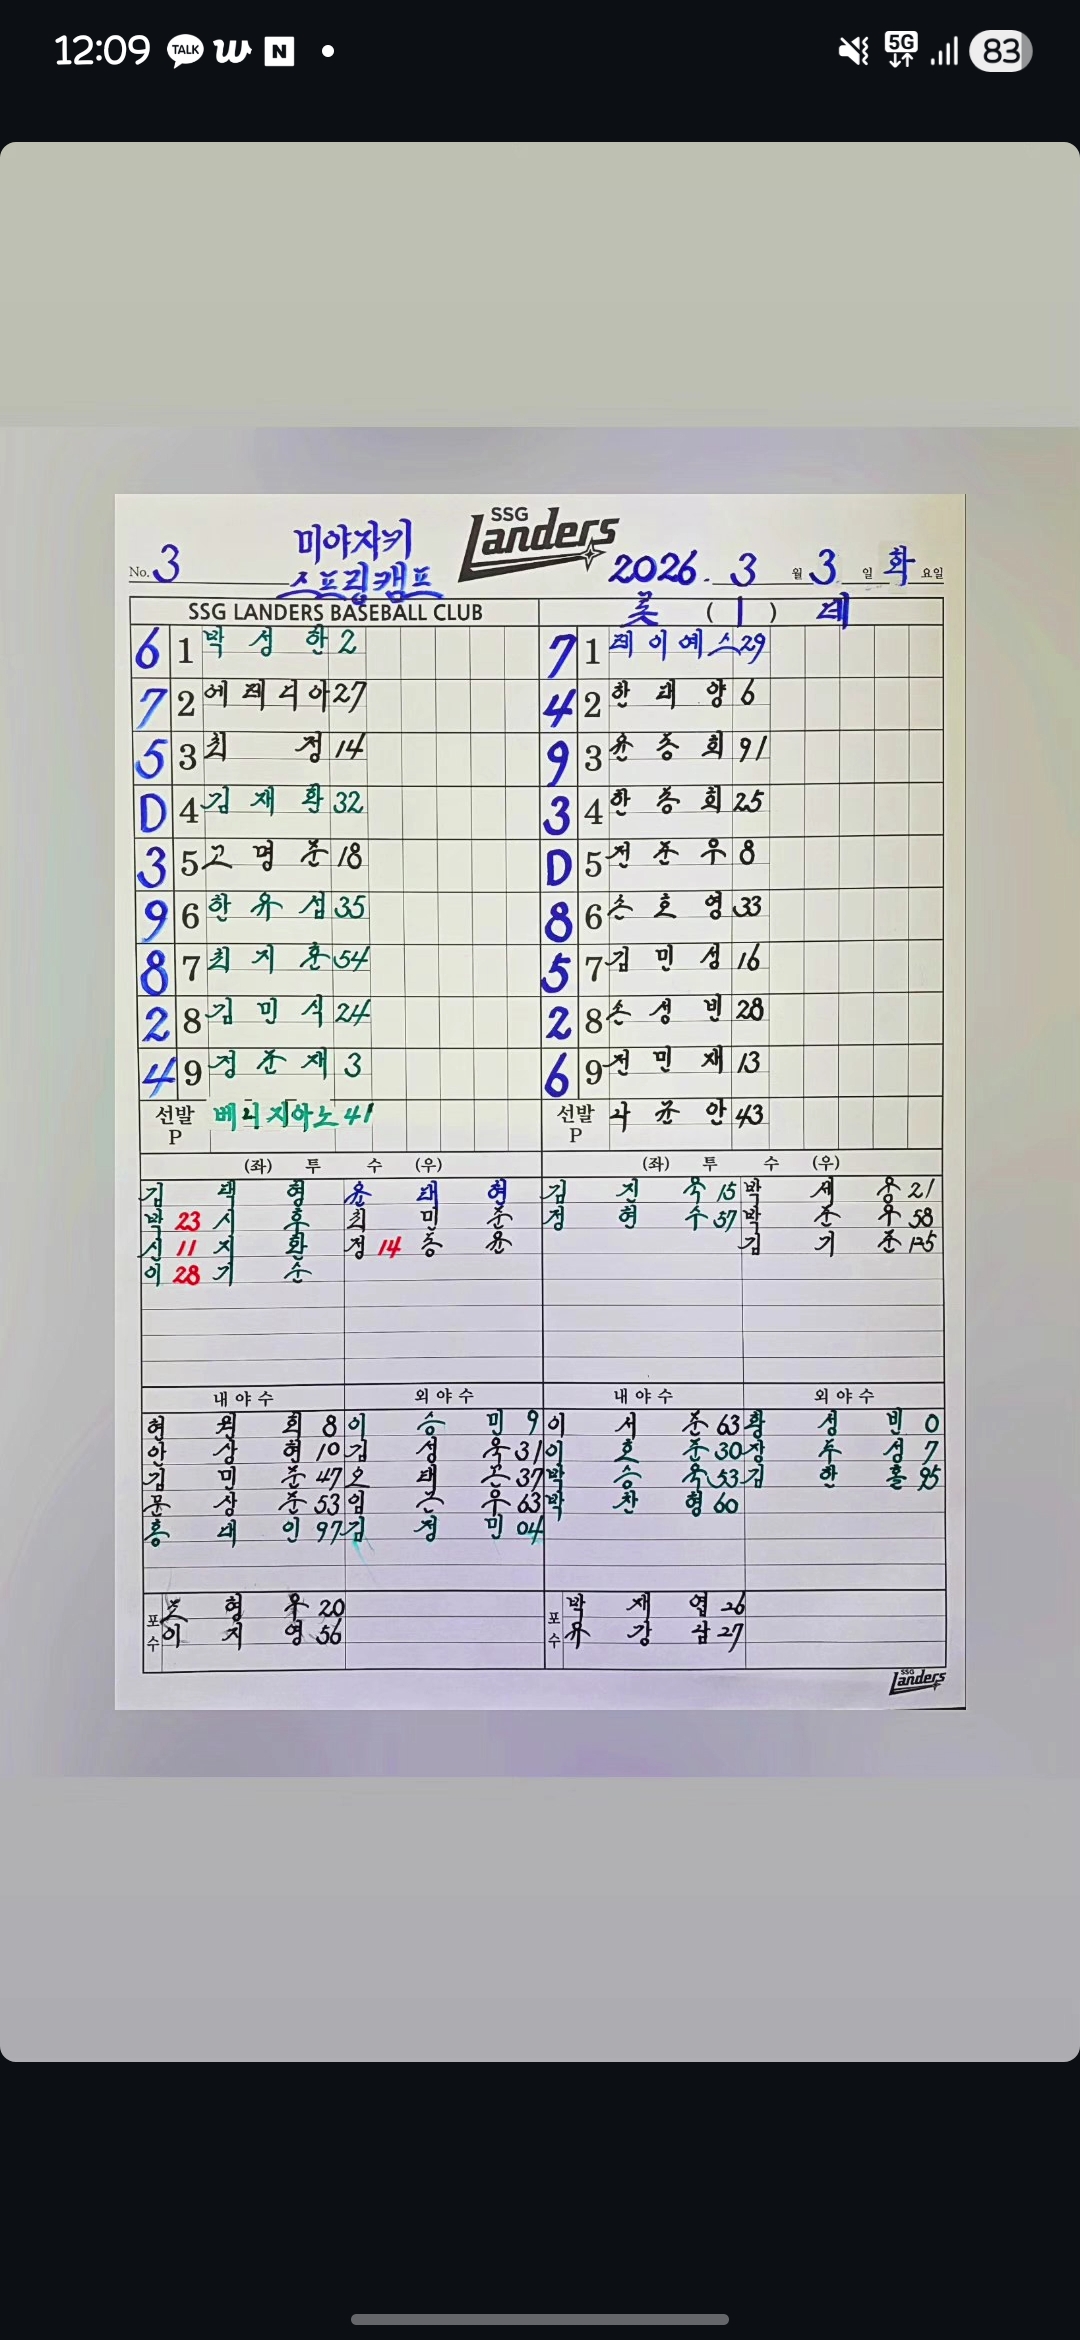 12:09 TALK W N 5G 83
SSG
Landers
미야자키
스프링캠프
No. 3
2026. 3 월 3 일 화 요일
SSG LANDERS BASEBALL CLUB
롯 ( 1 ) 데
6 1 박성한 2
7 1 레이예스 29
7 2 에레디아 27
4 2 한태양 6
5 3 최정 14
9 3 윤동희 91
D 4 김재환 32
3 4 한동희 25
3 5 고명준 18
D 5 전준우 8
9 6 한유섬 35
8 6 손호영 33
8 7 최지훈 54
5 7 김민성 16
2 8 김민식 24
2 8 손성빈 28
4 9 정준재 3
6 9 전민재 13
선발 P 베니지아노 41
선발 P 나균안 43
(좌) 투 수 (우)
(좌) 투 수 (우)
김택형 윤태현
김진욱 15 박세웅 21
박 23 시후 최민준
정현수 57 박준우 58
신 11 지환 정 14 동윤
김기준 125
이 28 기순
내야수 외야수 내야수 외야수
현원회 8 이승민 9 이서준 63 황성빈 0
안상현 10 김성욱 31 이호준 30 장두성 7
김민준 47 오태곤 37 박승욱 53 김한홀 95
문상준 53 임근우 63 박찬형 60
홍대인 97 김정민 04
포수 조형우 20
이지영 56
포수 박재엽 26
유강남 27
SSG
Landers